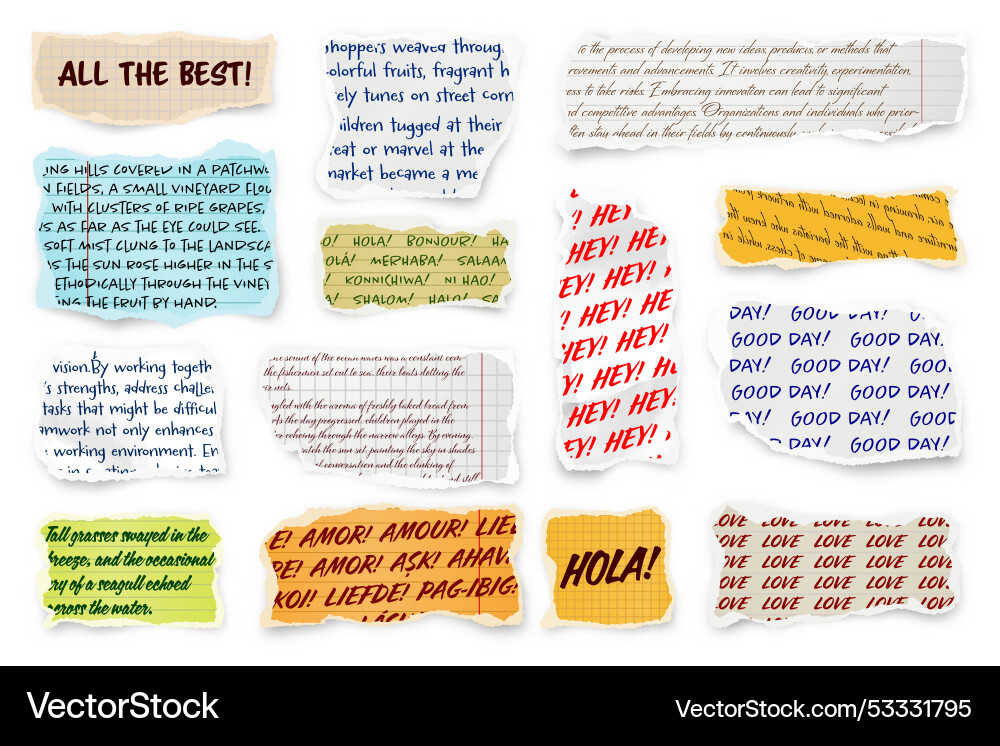 ALL THE BEST!
hoppers weaved throug
olorful fruits, fragrant h
ely tunes on street corn
ildren tugged at their
eat or marvel at the
market became a me
to the process of developing new ideas, products, or methods that
rovements and advancements. It involves creativity, experimentation,
ess to take risks. Embracing innovation can lead to significant
d competitive advantages. Organizations and individuals who prior-
ften stay ahead in their fields by continuously
ING HILLS COVERED IN A PATCHW
N FIELDS, A SMALL VINEYARD FLOU
WITH CLUSTERS OF RIPE GRAPES,
S AS FAR AS THE EYE COULD SEE.
SOFT MIST CLUNG TO THE LANDSCA
S THE SUN ROSE HIGHER IN THE S
ETHODICALLY THROUGH THE VINEY
ING THE FRUIT BY HAND.
O! HOLA! BONJOUR! HA
OLÁ! MERHABA! SALAA
KONNICHIWA! NI HAO!
A! SHALOM! HALO! SA
! HE
HEY! HE
EY! HEY!
! HEY! HE
HEY! HEY!
Y! HEY! H
HEY! HEY!
EY! HEY!
DAY! GOOD DAY! G
GOOD DAY! GOOD D
DAY! GOOD DAY!
GOOD DAY! GOOD D
DAY! GOOD DAY! G
DAY! GOOD DAY!
vision.By working togeth
's strengths, address challe
tasks that might be difficul
amwork not only enhances
working environment. En
he sound of the ocean waves was a constant com-
the fishermen set out to sea, their boats dotting the
ir nets.
ngled with the aroma of freshly baked bread from
As the day progressed, children played in the
ir echoing through the narrow alleys. By evening,
atch the sun set, painting the sky in shades
conversation and the clinking of
Tall grasses swayed in the
breeze, and the occasional
cry of a seagull echoed
across the water.
E! AMOR! AMOUR! LIE
PE! AMOR! AŞK! AHAV
KOI! LIEFDE! PAG-IBIG!
HOLA!
LOVE LOVE LOVE LOVE LOV
OVE LOVE LOVE LOVE LOV
OVE LOVE LOVE LOVE LOV
OVE LOVE LOVE LOVE LOV
OVE LOVE LOVE LOVE LOV
VectorStock®
VectorStock.com/53331795